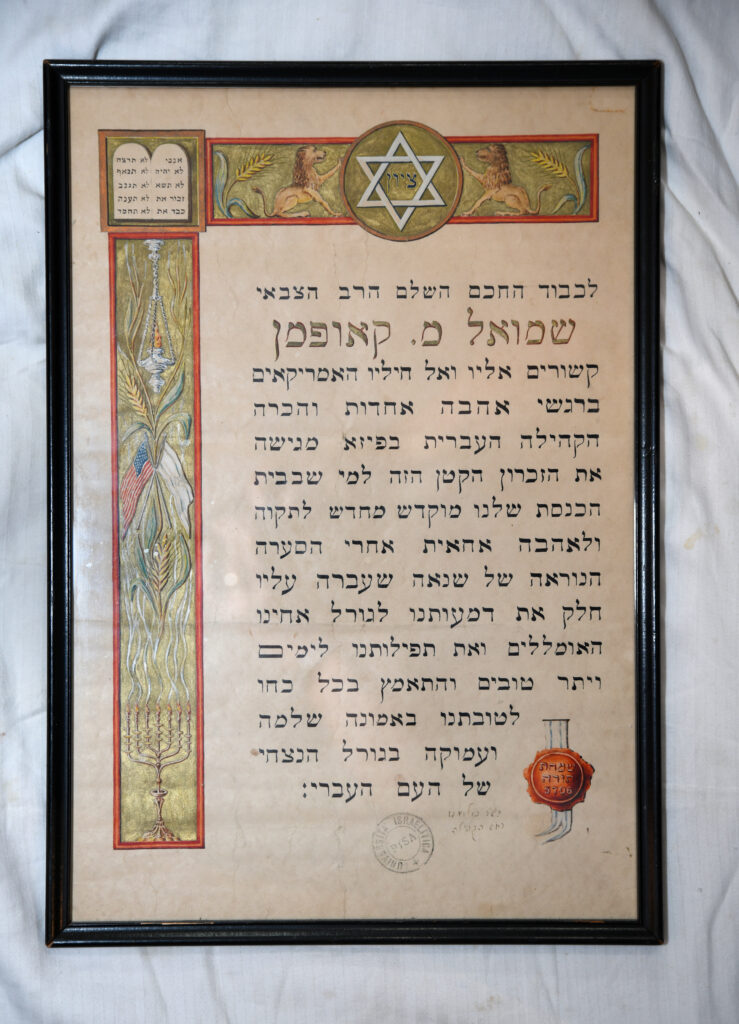 אנכי לא תרצח
לא יהיה לא תנאף
לא תשא לא תגנב
זכור את לא תענה
כבד את לא תחמד
ציון
לכבוד החכם השלם הרב הצבאי
שמואל מ. קאופמן
קשורים אליו ואל חיליו האמריקאים
ברגשי אהבה אחדות והכרה
הקהילה העברית בפיזא מגישה
את הזכרון הקטן הזה למי שבבית
הכנסת שלנו מוקדש מחדש לתקוה
ולאהבה אחאית אחרי הסערה
הנוראה של שנאה שעברה עליו
חלק את דמעותנו לגורל אחינו
האומללים ואת תפילותנו לימים
ויתר טובים והתאמץ בכל כחו
לטובתנו באמונה שלמה
ועמוקה בגורל הנצחי
של העם העברי:
שמחת
תורה
5706
UNIVERSITÀ ISRAELITICA
PISA